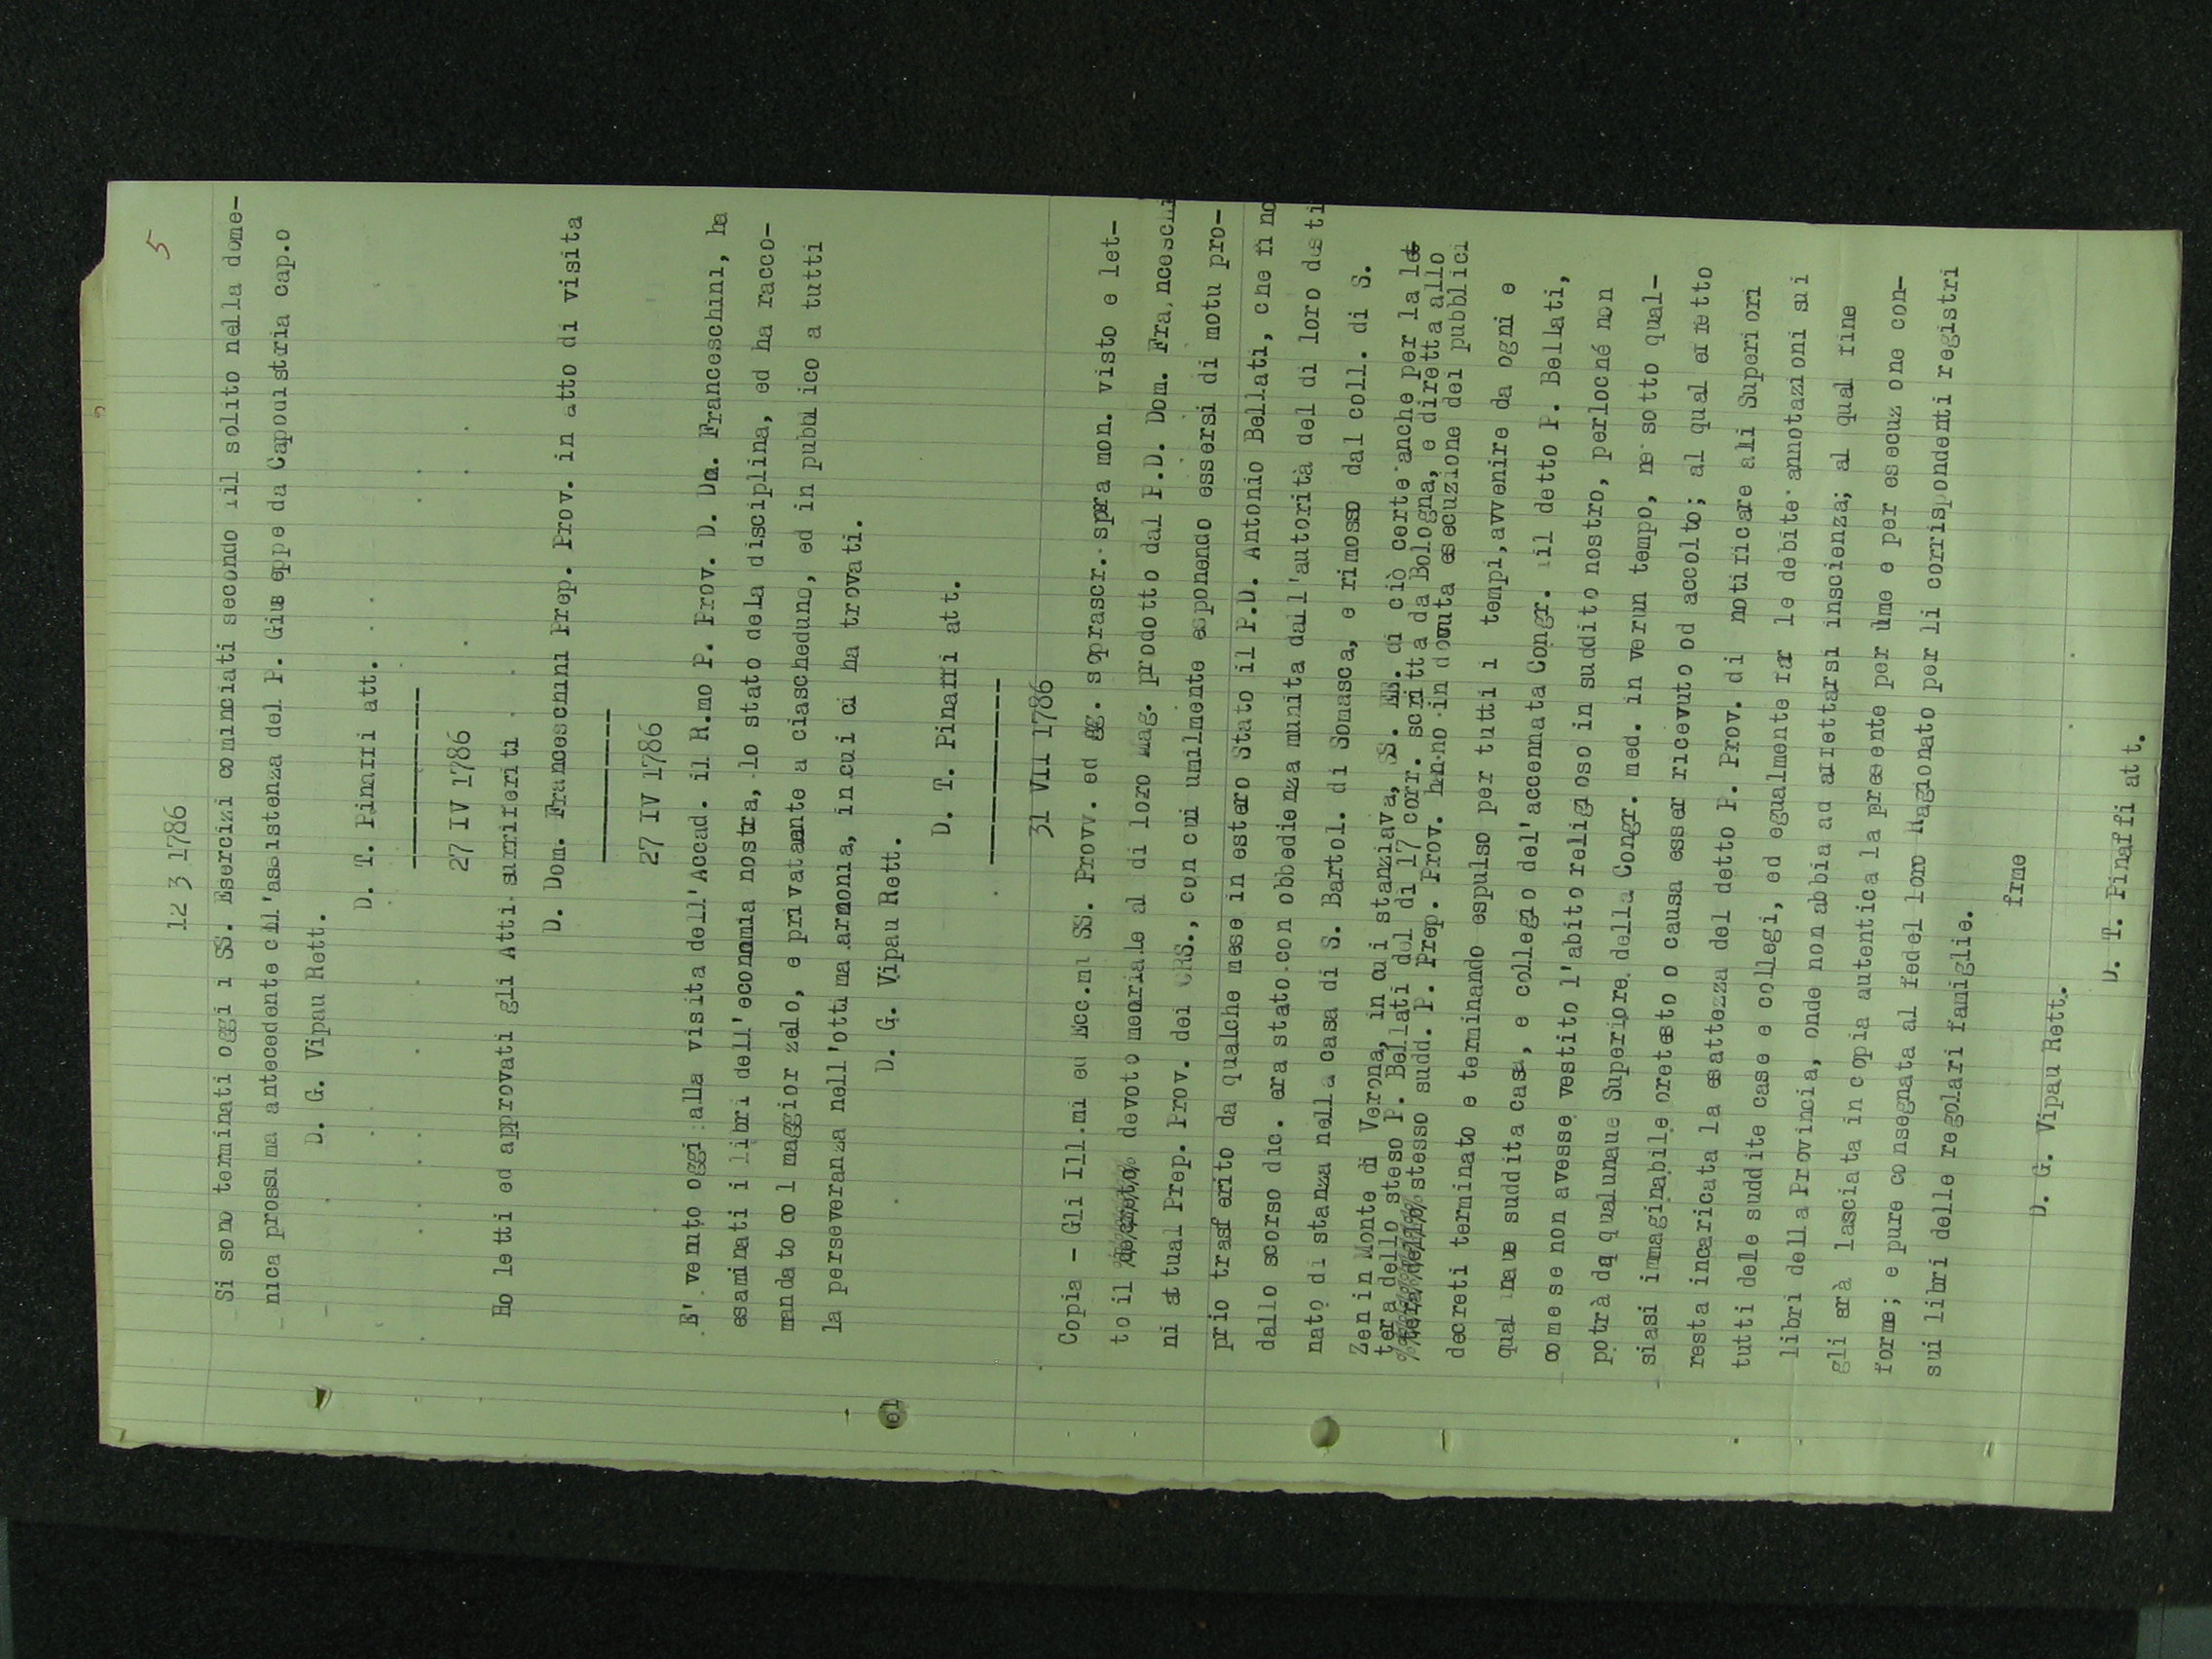 5
12 3 1786
Si sono terminati oggi i SS. Esercizi cominciati secondo il solito nella dome-
nica prossima antecedente cll'assistenza del P. Giuseppe da Capodistria cap.o
D. G. Vipau Rett.
D. T. Pinaffi att.
27 IV 1786
Ho letti ed approvati gli Atti surriferiti
D. Dom. Franceschini Prep. Prov. in atto di visita
27 IV 1786
E' venuto oggi alla visita dell'Accad. il R.mo P. Prov. D. Dm. Franceschini, ha
esaminati i libri dell'economia nostra, lo stato dela disciplina, ed ha racco-
mandato col maggior zelo, e privataente a ciascheduno, ed in pubblico a tutti
la perseveranza nell'ottima armonia, in cui ci ha trovati.
D. G. Vipau Rett.
D. T. Pinaffi att.
31 VII 1786
Copia - Gli Ill.mi ed Ecc.mi SS. Provv. ed gg. soprascr. spra mon. visto e let-
to il decreto devoto meoriale al di loro mag. prodotto dal P.D. Dom. Franceschi
ni attual Prep. Prov. dei CRS., con cui umilmente esponendo essersi di motu pro-
prio trasferito da qualche mese in estero Stato il P.D. Antonio Bellati, che fi no
dallo scorso dic. era stato con obbedienza munita dall'autorità del di loro desti
nato di stanza nella casa di S. Bartol. di Somasca, e rimosso dal coll. di S.
Zen in Monte di Verona, in cui stanziava, SS. EE. di ciò certe anche per la let
tera dello steso P. Bellati del di 17 corr. scritta da Bologna, e diretta allo
stesso sudd. P. Prep. Prov. hanno in dovuta esecuzione dei pubblici
decreti terminato e terminando espulso per tutti i tempi,avvenire da ogni e
qualunaue suddita casa, e collegio dell'accennata Congr. il detto P. Bellati,
come se non avesse vestito l'abito religioso in suddito nostro, perlocné non
potrà da qualunaue Superiore della Congr. med. in verun tempo, ne sotto qual-
siasi immaginabile oretesto o causa esser ricevuto od accolto; al qual effetto
resta incaricata la esattezza del detto P. Prov. di notificare alli Superiori
tutti delle suddite case e collegi, ed egualmente far le debite annotazioni sui
libri della Provincia, onde non abbia ad affettarsi inscienza; al qual fine
gli srà lasciata in copia autentica la presente per lume e per esecuzone con-
forme; e pure consegnata al fedel loro Ragionato per li corrispondenti registri
sui libri delle regolari famiglie.
frme
D. G. Vipau Rett.
D. T. Pinaffi att.